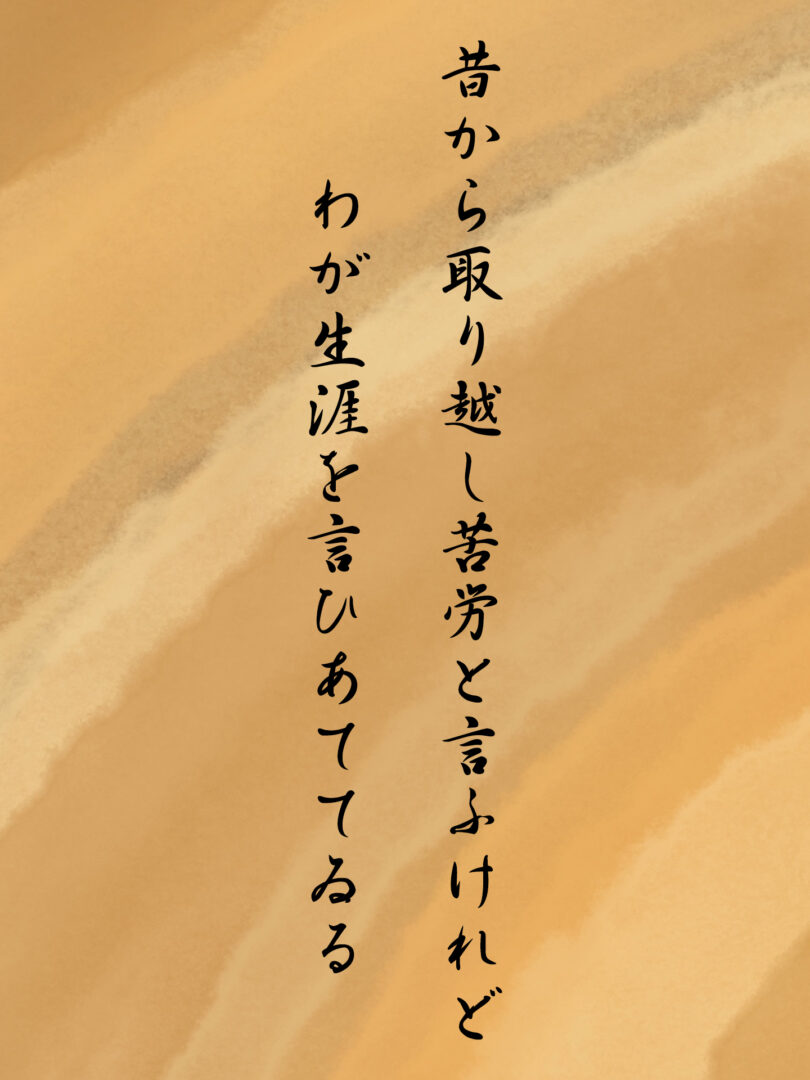 昔から取り越し苦労と言ふけれど
わが生涯を言ひあててゐる